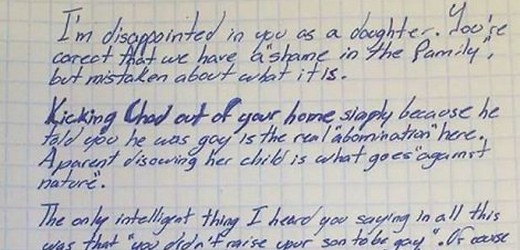 I'm disappointed in you as a daughter. You're
correct that we have a "shame in the family",
but mistaken about what it is.
Kicking Chad out of your home simply because he
told you he was gay is the real "abomination" here.
A parent disowning her child is what goes "against
nature".
The only intelligent thing I heard you saying in all this
was that "you didn't raise your son to be gay". Of course